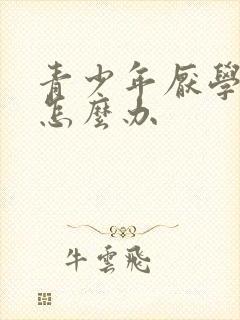 青少年厌學
怎麼办
牛雲飛